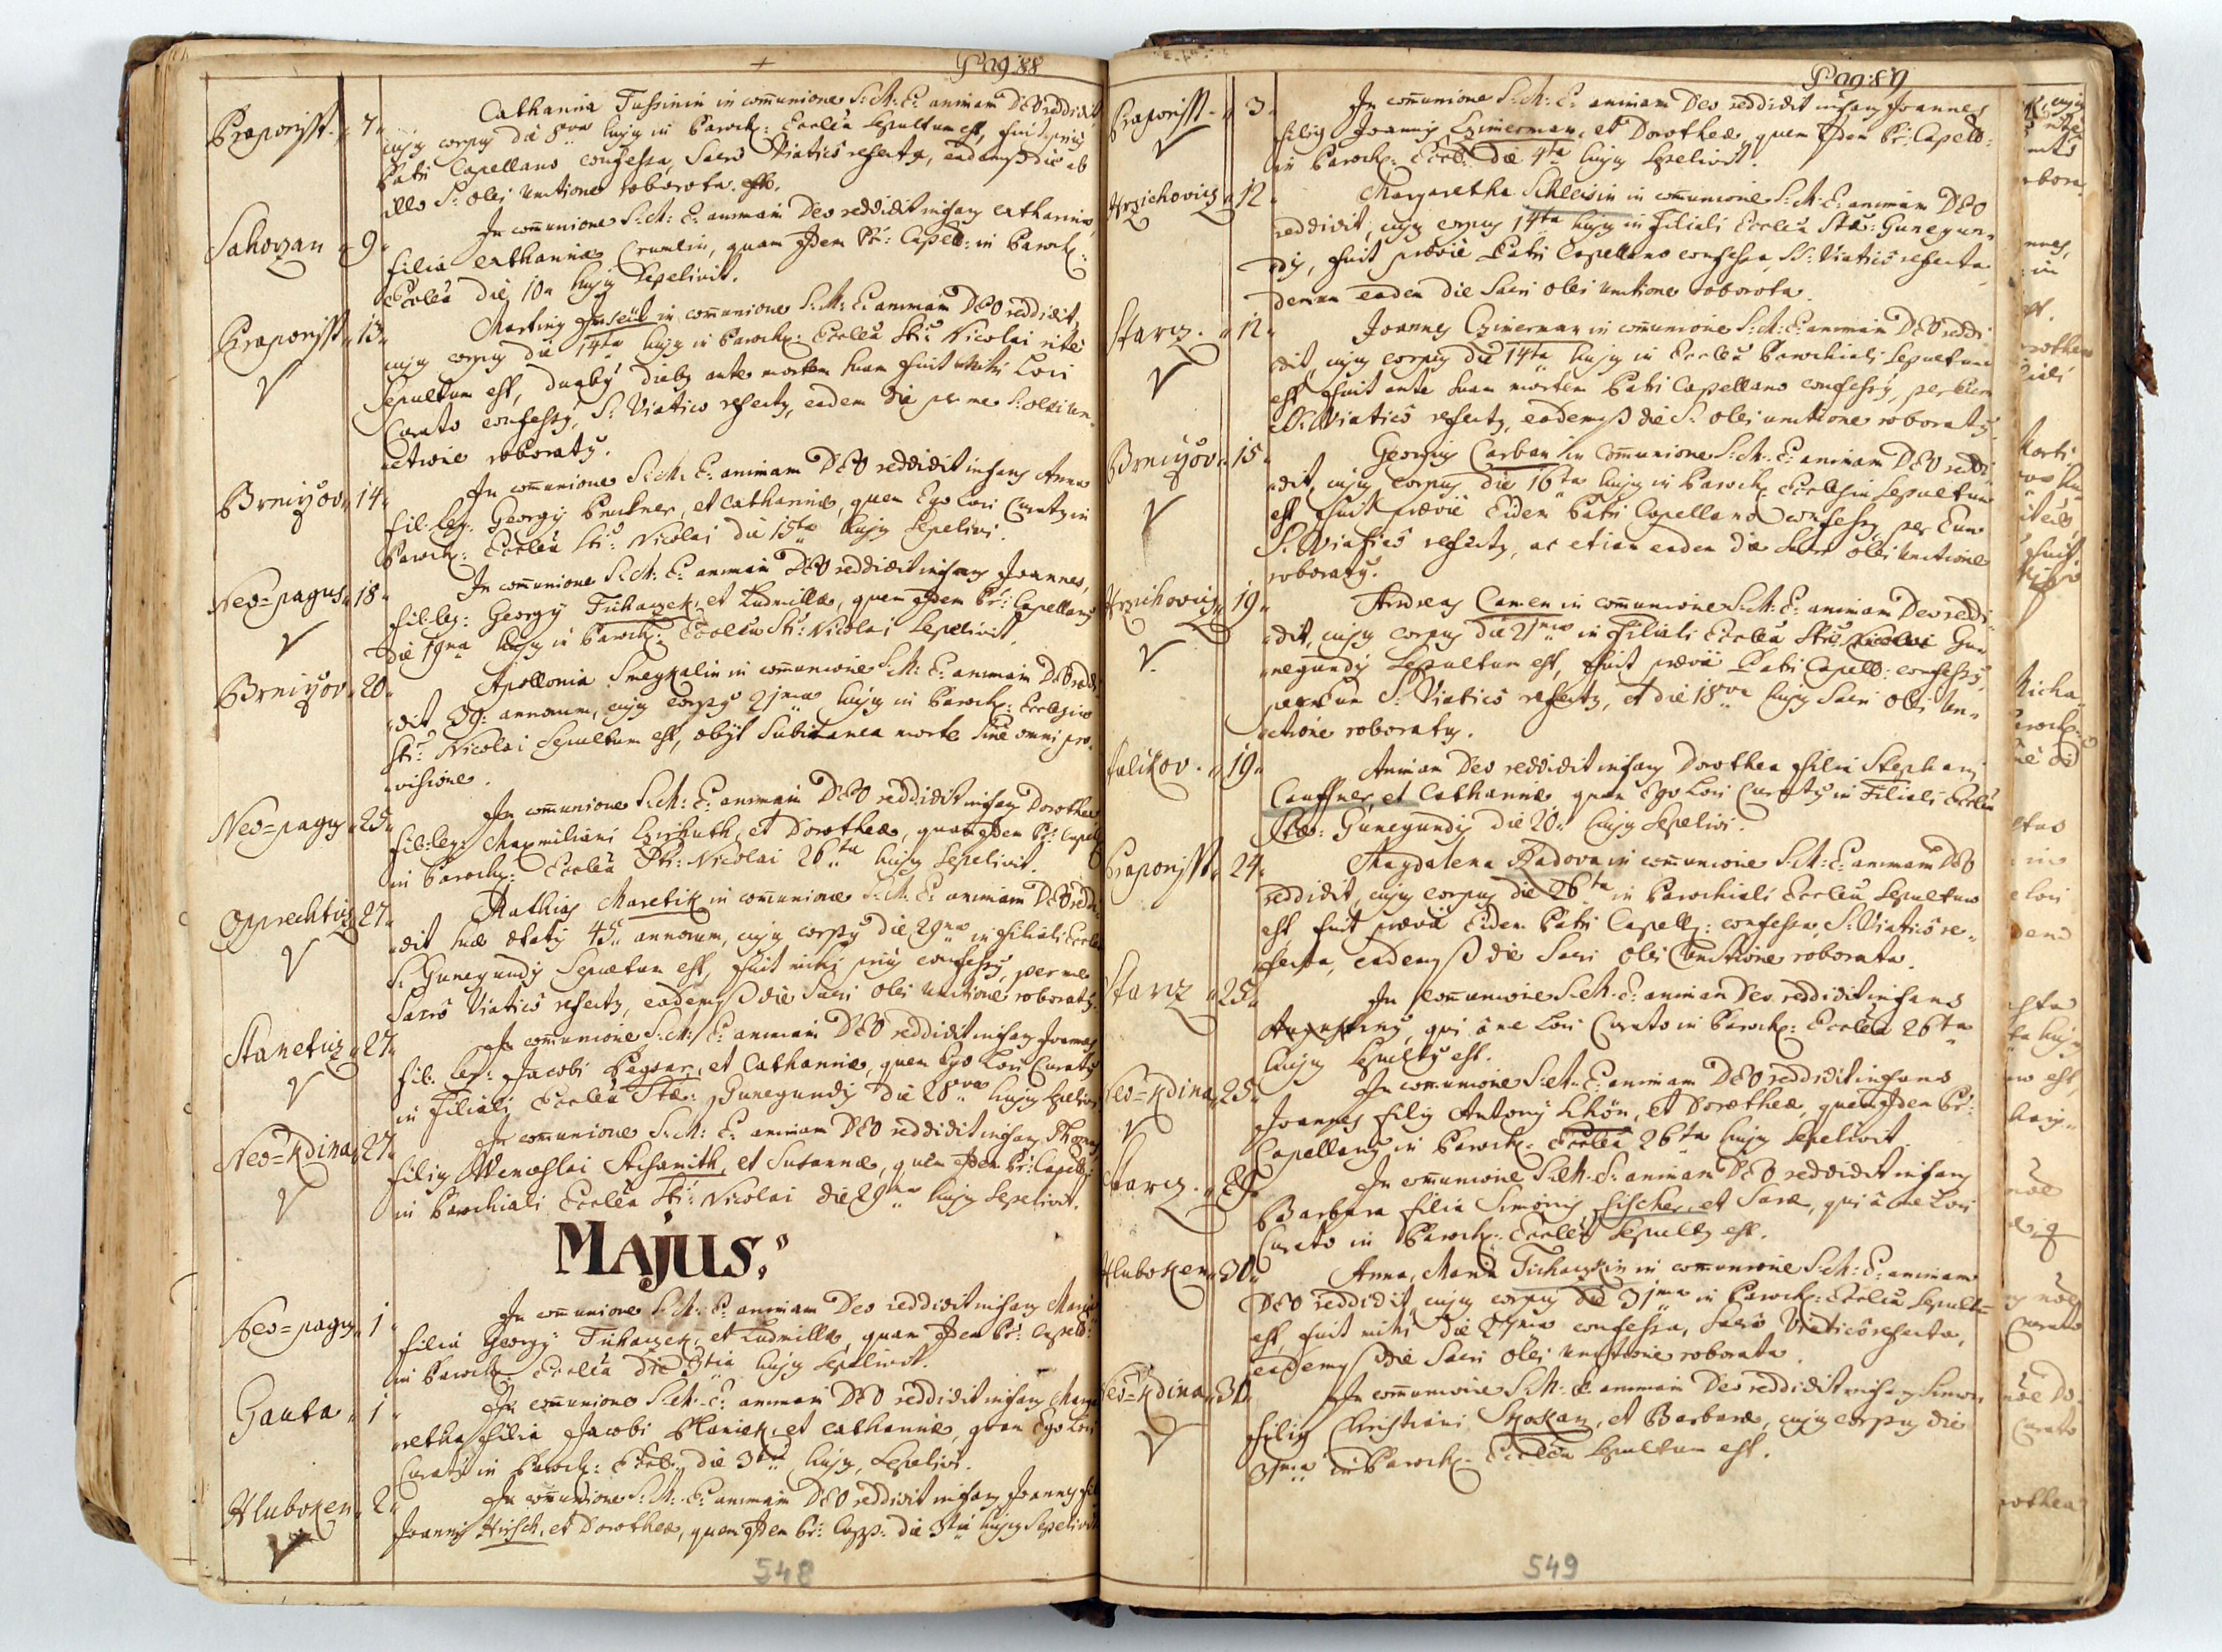 Pag: 88
Praporisst. 7. Catharina Tussinin in com̄unione S: M: E: animam DEO reddidit
cujus corpus die 8va hujus in Paroch: Ecclia Sepultum est, fuit prius
Patri Capellano confessa, Sacro Viatico refecta, eademq die ab
illo S: olei unctione roborata.
Sahorzan 9. In com̄unione S: M: E: animam Deo reddidit infans Catharina,
filia Catharinae, quam Idem Pr: Capell: in Paroch:
Ecclia die 10. hujus Sepelivit.
Praporisst. 13. Martinus in com̄unione S: M: E: animam DEO reddidit,
cujus corpus die 14ta hujus in Paroch: Ecclia Sti: Nicolai rite
Sepultum est, duobus diebus ante mortem suam fuit mihi Loci
Curato confessus, S: Viatico refectus, eadem die per me S: olei un-
ctione roboratus.
Brnirzov. 14. In com̄unione S: M: E: animam DEO reddidit infans Anna
fil: leg: Georgij Pruckner, et Catharinae, quam Ego Loci Curatus in
Paroch: Ecclia Sti: Nicolai die 15ta hujus Sepelivi.
Neo=pagus 18. In com̄unione S: M: E: animam DEO reddidit infans Joannes,
fil: leg: Georgij Tichaczek, et Ludmillae, quem Idem Pr: Capellanus
die 19na hujus in Paroch: Ecclia Sti: Nicolai Sepelivit.
Brnirzov. 20. Apollonia Smeykalin in com̄unione S: M: E: animam DEO reddi-
dit 39: annorum, cujus corpus 21ma hujus in Paroch: Ecclesia
Sti: Nicolai Sepultum est, obijt Subitanea morte sine omni pro-
visione.
Neo=pagus 25. In com̄unione S: M: E: animam DEO reddidit infans Dorothea
fil: leg: Maximiliani, et Dorotheae, quam Idem Pr: Capell:
in Paroch: Ecclia Sti: Nicolai 26ta hujus Sepelivit.
Opprechtitz 27. Mathias Maretik in com̄unione S: M: E: animam DEO reddi-
dit suae aetatis 45 annorum, cujus corpus die 29na in filiali Ecclia
S: Gunegundis Sepultum est, fuit mihi prius confessus, per me
Sacro Viatico refectus, eademq die Sacri olei unctione roboratus.
Stanetitz 27. In com̄unione S: M: E: animam DEO reddidit infans Joannes
fil: leg: Jacobi, et Catharinae, quem Ego Loci Curatus
in Filiali Ecclia Stae: Gunegundis die 28va hujus Sepelivi.
Neo=Kdina 27. In com̄unione S: M: E: animam DEO reddidit infans Thomas
filius Wenceslai, et Susannae, quem Idem Pr: Capell:
in Parochiali Ecclia Sti: Nicolai die 29na hujus Sepelivit.
MAJUS.
Neo=pagus 1. In com̄unione S: M: E: animam Deo reddidit infans Maria
filia Georgij Tichaczek, et Ludmillae, quam Idem Pr: Capell:
in Paroch: Ecclia die 3tia hujus Sepelivit.
Gauta 1. In com̄unione S: M: E: animam DEO reddidit infans Marga-
retha filia Jacobi, et Catharinae, quam Ego Loci
Curatus in Paroch: Eccl: die 3tia hujus, Sepelivi.
Hluboken 2. In com̄unione S: M: E: animam DEO reddidit infans Joannes fil:
Joannis Hirsch, et Dorotheae, quem Idem Pr: Capp: die 3tia hujus Sepelivit
548
Pag: 89
Praporisst. 3. In com̄unione S: M: E: animam Deo reddidit infans Joannes
filius Joannis Czimerman, et Dorotheae, quem Idem Pr: Capell:
in Paroch: Eccl: die 4ta hujus Sepelivit.
Hrzichovitz 12. Margaretha in com̄unione S: M: E: animam DEO
reddidit, cujus corpus 14ta hujus in Filiali Ecclia Stae: Gunegun-
dis, fuit praevie Patri Capellano confessa, SS: Viatico refecta
demum eadem die Sacri olei unctione roborata.
Starz. 12. Joannes Czimerman in com̄unione S: M: E: animam DEO reddi-
dit, cujus corpus die 14ta hujus in Ecclia Parochiali Sepultum
est fuit ante suam mortem Patri Capellano confessus, per eum
SS: Viatico refectus, eademq die S: olei unctione roboratus.
Brnirzov. 15. Georgius Carban in Com̄unione S: M: E: animam DEO reddi-
dit, cujus corpus die 16ta hujus in Paroch: Ecclesia Sepultum
est fuit praevie Eidem Patri Capellano confessus, per Eum
S: Viatico refectus, ac etiam eadem die Sacri olei Unctione
roboratus.
Hrzichovitz 19. Andreas Camen in com̄unione S: M: E: animam Deo reddi-
dit, cujus corpus die 21ma in Filiali Ecclia Stae Nicolai Gu-
negundis Sepultum est, fuit praevie Patri Capell: confessus
per eum S: Viatico refectus, et die 18va hujus Sacri olei Un-
ctione roboratus.
Salikov. 19. Animam Deo reddidit infans Dorothea filia Stephani
Cauffner, et Catharinae quam Ego Loci Curatus in Filiali Ecclia
Stae: Gunegundis die 20. hujus Sepelivi.
Praporisst. 24. Magdalena Radova in com̄unione S: M: E: animam DEO
reddidit, cujus corpus die 26ta in Parochiali Ecclia Sepultum
est, fuit praevie Eidem Patri Capell: confessa, S: Viatico re-
fecta, eademq die Sacri Olei Unctione roborata.
Starz 25. In com̄unione S: M: E: animam Deo reddidit infans
Augustinus, qui à me Loci Curato in Paroch: Ecclia 26ta
hujus Sepultus est.
Neo=Kdina 25. In com̄unione S: M: E: animam DEO reddidit infans
Joannes filius Antonij Schön, et Dorotheae, quem Idem Pr:
Capellanus in Paroch: Ecclia 26ta hujus Sepelivit.
Starz. In com̄unione S: M: E: animam DEO reddidit infans
Barbara filia Simonis Fischer, et Sarae, qui à me Loci
Curato in Paroch: Ecclia Sepulta est.
Hluboken 30. Anna Maria Tichaczkin in com̄unione S: M: E: animam
DEO reddidit, cujus corpus die 31ma in Paroch: Ecclia Sepult=
est, fuit mihi die 27ma confessa, Sacro Viatico refecta,
eademq die Sacri Olei unctione roborata.
Neo=Kdina 30. In com̄unione S: M: E: animam Deo reddidit infans Simon,
filius Christiani, et Barbarae, cujus corpus die
31ma in Paroch: Ecclia Sepultum est.
549